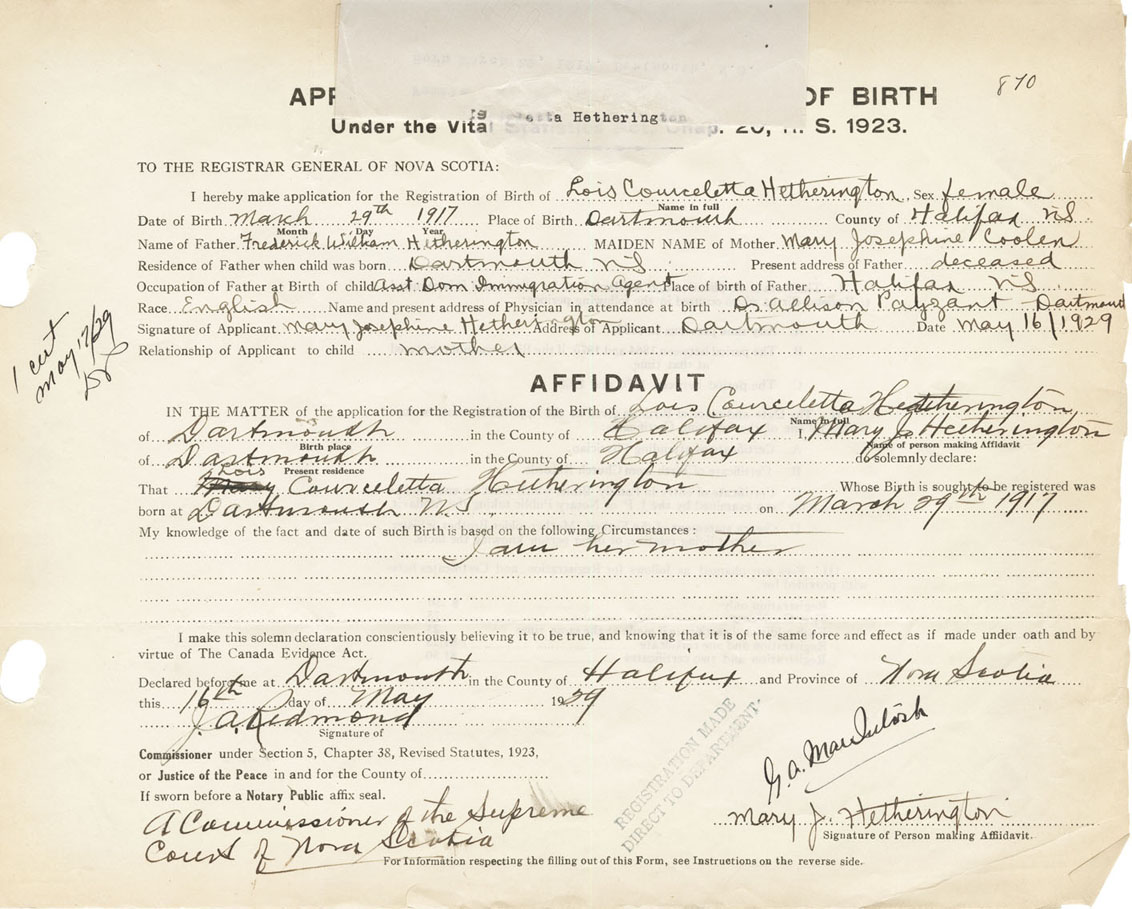 870
APP OF BIRTH
is etta Hetherington
Under the Vital Statistics Chap. 20, R. S. 1923.
TO THE REGISTRAR GENERAL OF NOVA SCOTIA:
I hereby make application for the Registration of Birth of Lois Courceletta Hetherington Sex female
Name in full
Date of Birth March 29th 1917 Place of Birth Dartmouth County of Halifax NS
Month Day Year
Name of Father Frederick William Hetherington MAIDEN NAME of Mother Mary Josephine Coolen
Residence of Father when child was born Dartmouth NS Present address of Father deceased
Occupation of Father at Birth of child Asst Dom Immigration Agent Place of birth of Father Halifax NS
Race English Name and present address of Physician in attendance at birth Dr Allison Payzant Dartmouth
Signature of Applicant Mary Josephine Hetherington Address of Applicant Dartmouth Date May 16/1929
Relationship of Applicant to child mother
1 cert
May 17/29
AFFIDAVIT
IN THE MATTER of the application for the Registration of the Birth of Lois Courceletta Hetherington
Name in full
of Dartmouth in the County of Halifax I, Mary J. Hetherington
Birth place Name of person making Affidavit
of Dartmouth in the County of Halifax do solemnly declare:
Present residence
That Mary Lois Courceletta Hetherington Whose Birth is sought to be registered was
born at Dartmouth N.S. on March 29th 1917
My knowledge of the fact and date of such Birth is based on the following Circumstances :
I am her mother
I make this solemn declaration conscientiously believing it to be true, and knowing that it is of the same force and effect as if made under oath and by
virtue of The Canada Evidence Act.
Declared before me at Dartmouth in the County of Halifax and Province of Nova Scotia
this 16th day of May 1929
J. A. Redmond
Signature of
Commissioner under Section 5, Chapter 38, Revised Statutes, 1923,
or Justice of the Peace in and for the County of
If sworn before a Notary Public affix seal.
A Commissioner of the Supreme
Court of Nova Scotia
REGISTRATION MADE
DIRECT TO DEPARTMENT.
G. A. MacIntosh
Mary J. Hetherington
Signature of Person making Affidavit.
For Information respecting the filling out of this Form, see Instructions on the reverse side.